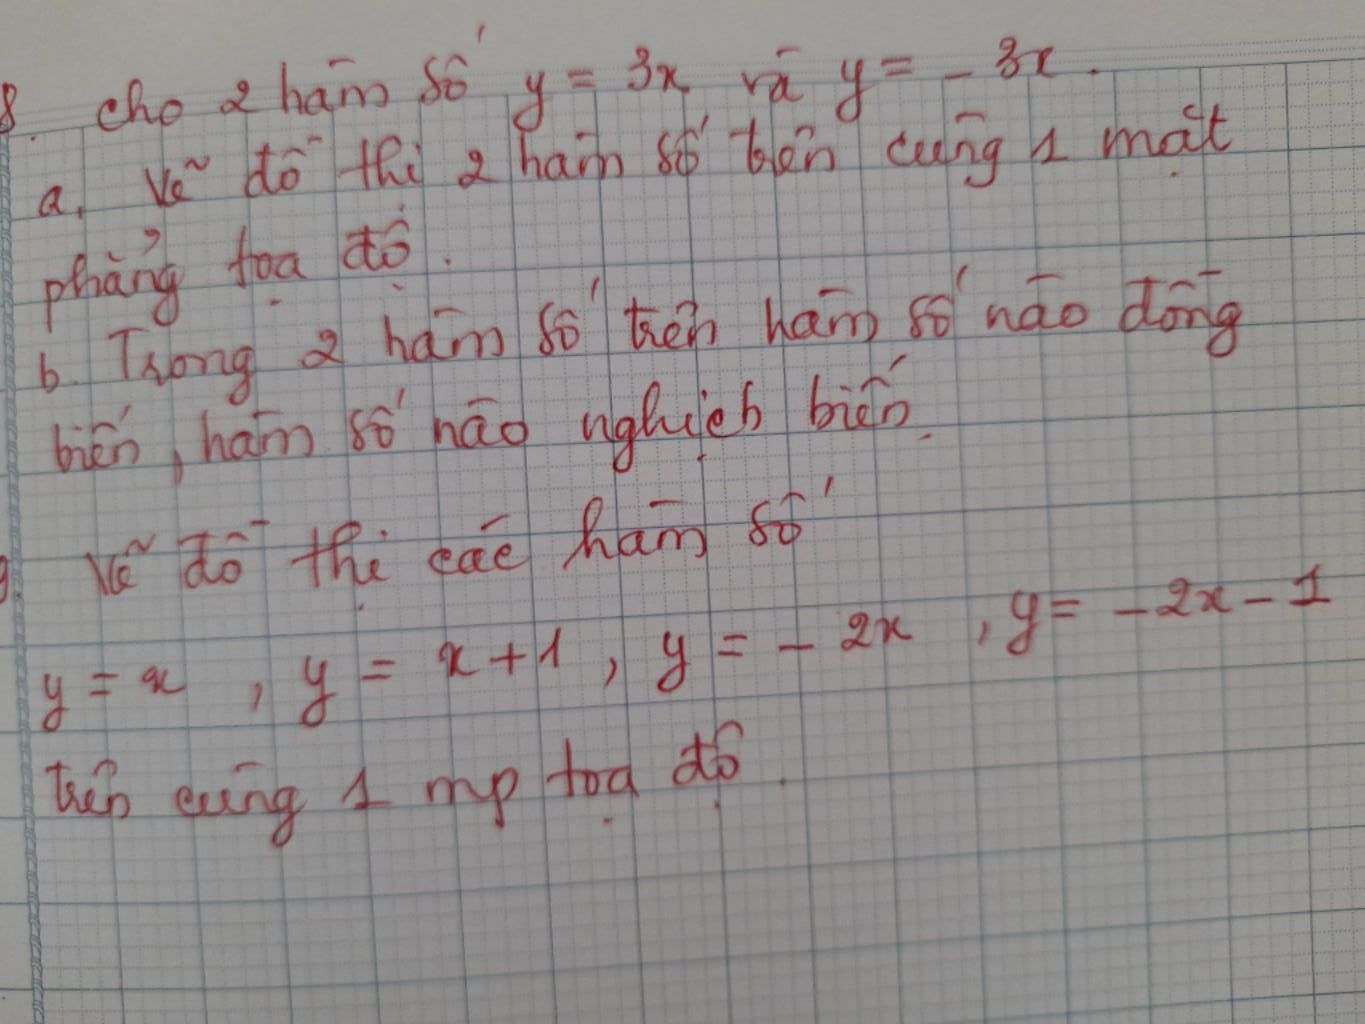 8. Cho 2 hàm số y = 3x và y = - 3x.
a. Vẽ đồ thị 2 hàm số trên cùng 1 mặt
phẳng tọa độ.
b. Trong 2 hàm số trên hàm số nào đồng
biến, hàm số nào nghịch biến.
9. Vẽ đồ thị các hàm số
y = x , y = x + 1 , y = - 2x , y = - 2x - 1
trên cùng 1 mp tọa độ.